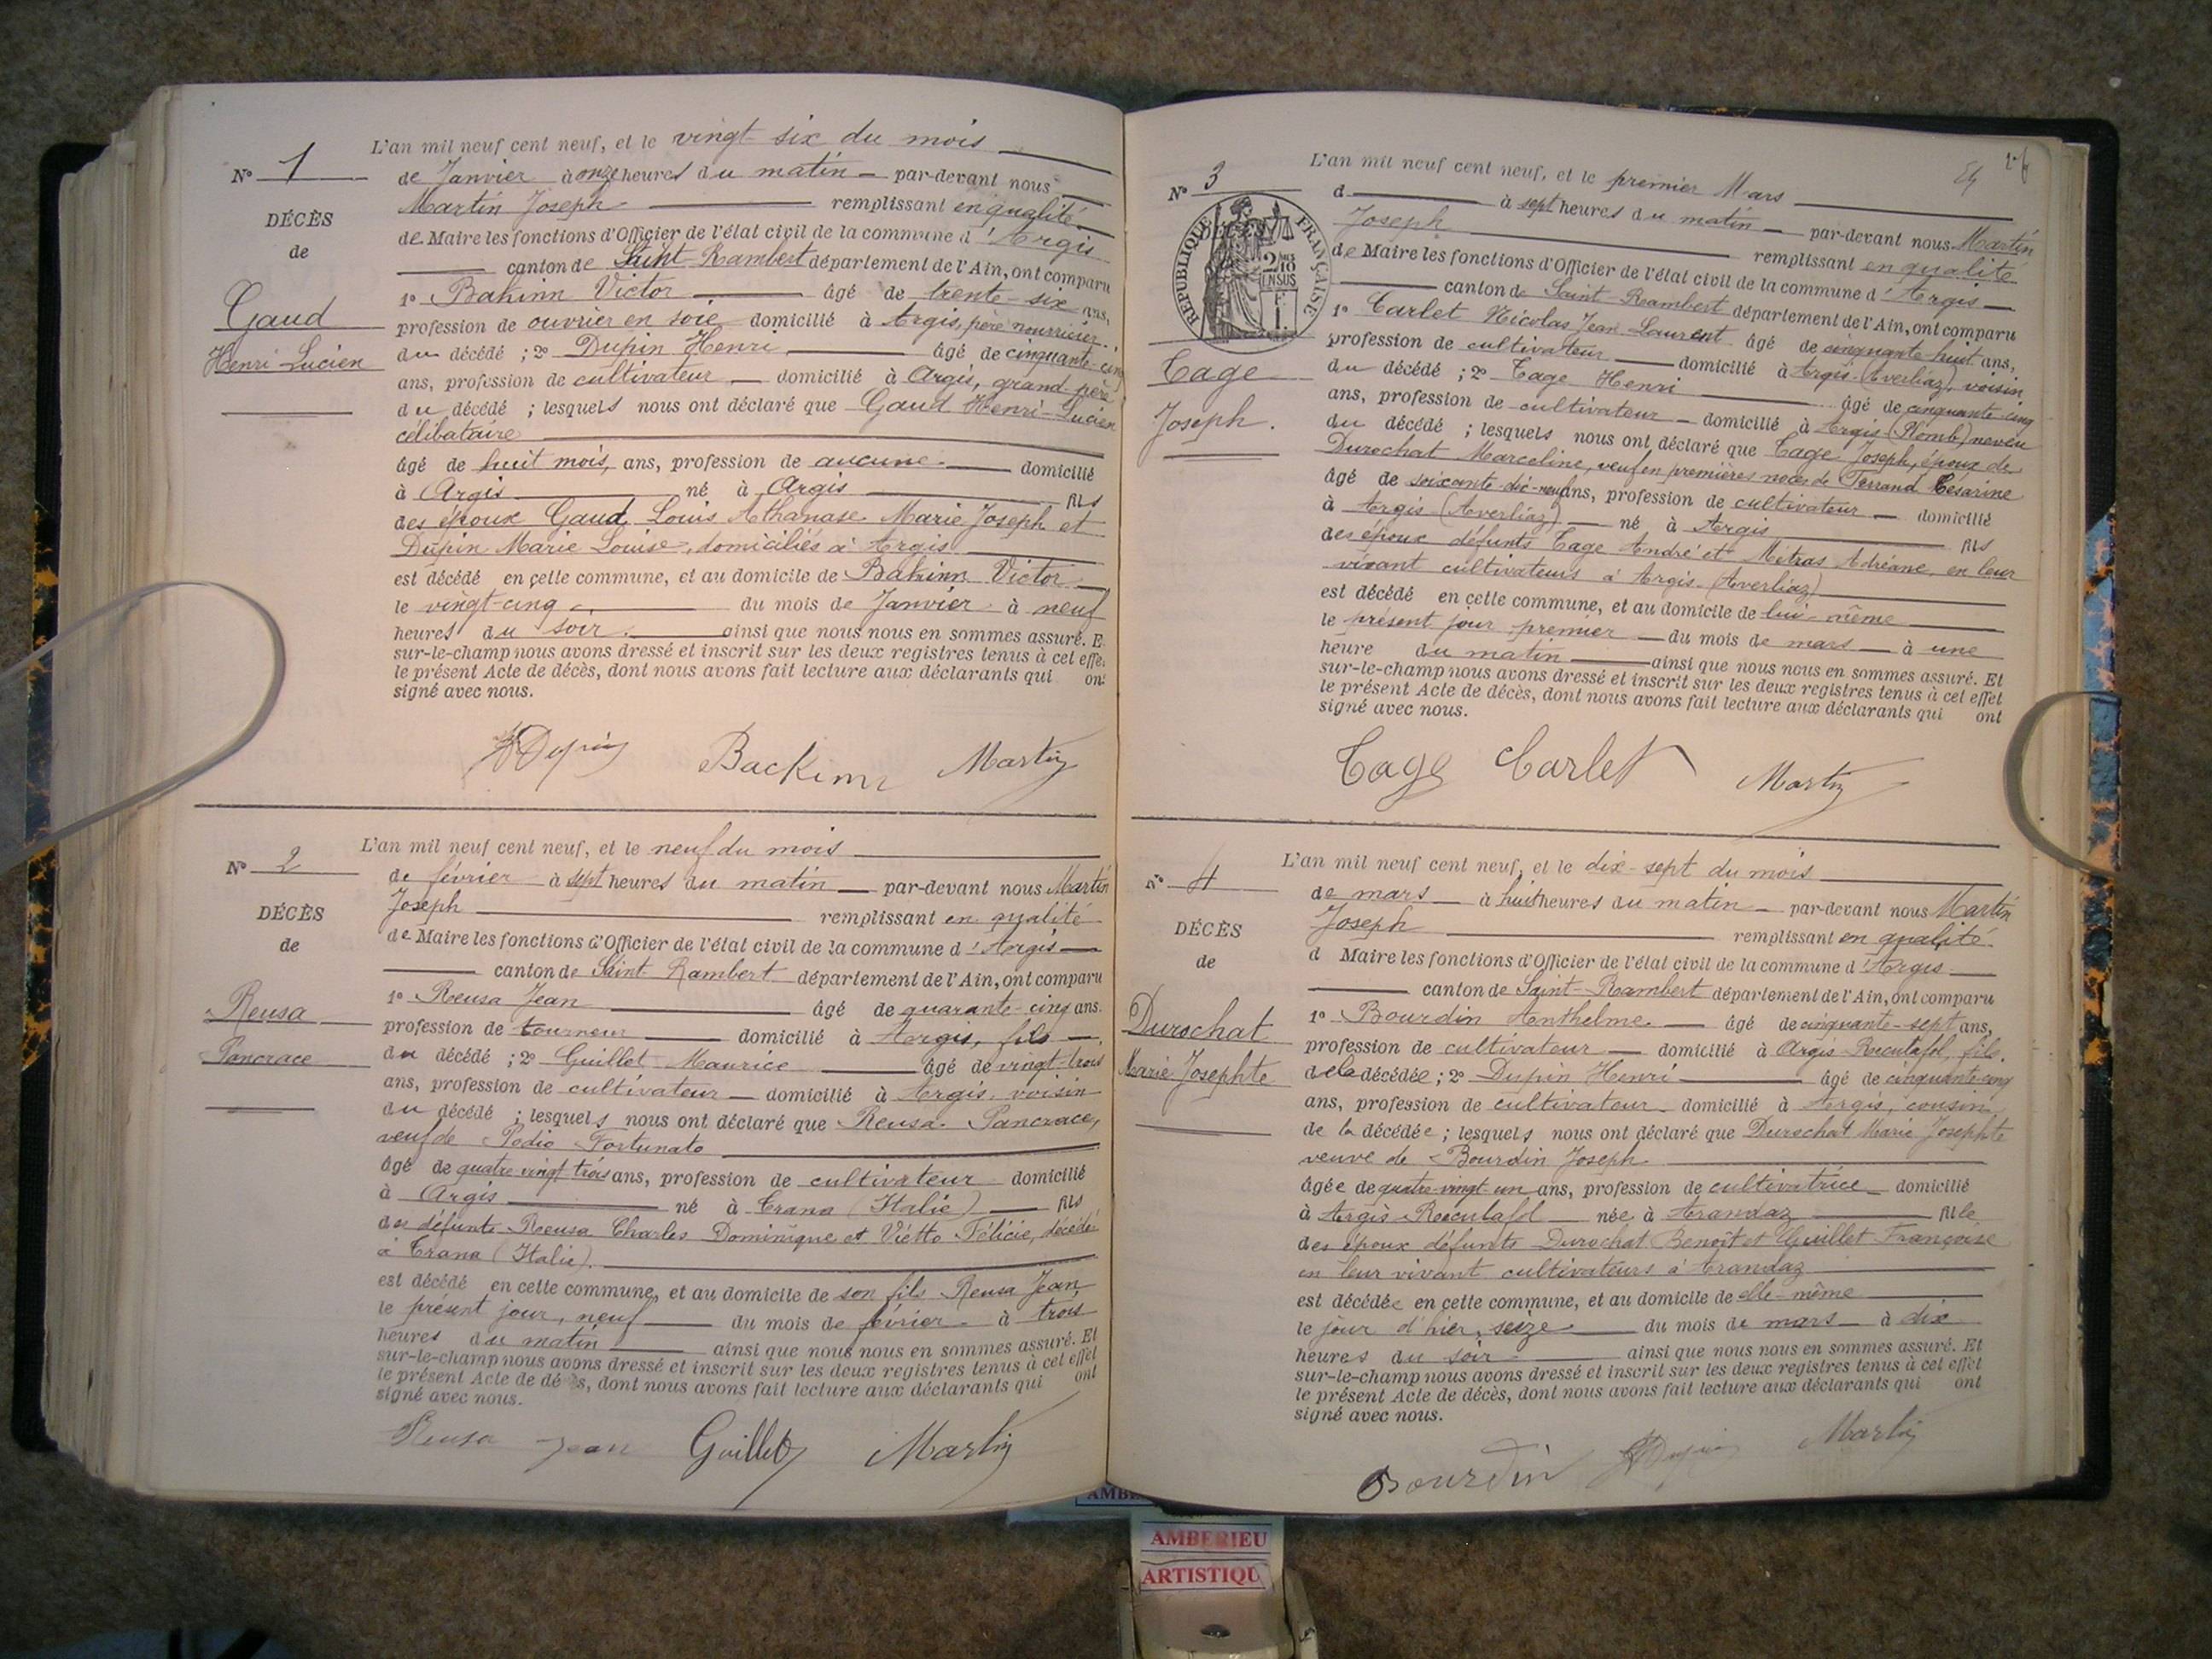 N° 1
DÉCÈS
de
Gaud
Henri Lucien
L'an mil neuf cent neuf, et le vingt-six du mois
de Janvier à onze heures du matin par-devant nous
Martin Joseph remplissant en qualité
de Maire les fonctions d'Officier de l'état civil de la commune d'Argis
canton de Saint-Rambert département de l'Ain, ont comparu
1° Bakinn Victor âgé de trente-six ans,
profession de ouvrier en soie domicilié à Argis, père nourricier
du décédé ; 2° Dupin Henri âgé de cinquante-cinq
ans, profession de cultivateur domicilié à Argis, grand père
du décédé ; lesquels nous ont déclaré que Gaud Henri-Lucien
célibataire
âgé de huit mois, ans, profession de aucune domicilié
à Argis né à Argis fils
des époux Gaud Louis Athanase Marie Joseph et
Dupin Marie Louise, domiciliés à Argis
est décédé en cette commune, et au domicile de Bakinn Victor
le vingt-cinq du mois de Janvier à neuf
heures du soir ainsi que nous nous en sommes assuré. E
sur-le-champ nous avons dressé et inscrit sur les deux registres tenus à cet effe
le présent Acte de décès, dont nous avons fait lecture aux déclarants qui on
signé avec nous.
HDupin Backinn Martin
N° 2
DÉCÈS
de
Reusa
Pancrace
L'an mil neuf cent neuf, et le neuf du mois
de février à sept heures du matin par-devant nous Martin
Joseph remplissant en qualité
de Maire les fonctions d'Officier de l'état civil de la commune d'Argis
canton de Saint-Rambert département de l'Ain, ont comparu
1° Reusa Jean âgé de quarante-cinq ans.
profession de tourneur domicilié à Argis, fils
du décédé ; 2° Guillet Maurice âgé de vingt-trois
ans, profession de cultivateur domicilié à Argis, voisin
du décédé ; lesquels nous ont déclaré que Reusa Pancrace,
veuf de Pedio Fortunato
âgé de quatre vingt trois ans, profession de cultivateur domicilié
à Argis né à Trana (Italie) fils
des défunts Reusa Charles Dominique et Viétto Félicie, décédés
à Trana (Italie).
est décédé en cette commune, et au domicile de son fils Reusa Jean
le présent jour, neuf du mois de février à trois
heures du matin ainsi que nous nous en sommes assuré. Et
sur-le-champ nous avons dressé et inscrit sur les deux registres tenus à cet effet
le présent Acte de décès, dont nous avons fait lecture aux déclarants qui ont
signé avec nous.
Reusa Jean Guillet Martin
N° 3
REPUBLIQUE FRANÇAISE
DÉCÈS
2/10 EN SUS
Tage
Joseph.
L'an mil neuf cent neuf, et le premier Mars
d à sept heures du matin par-devant nous Martin
Joseph remplissant en qualité
de Maire les fonctions d'Officier de l'état civil de la commune d'Argis
canton de Saint Rambert département de l'Ain, ont comparu
1° Carlet Nicolas Jean Laurent âgé de cinquante-huit ans,
profession de cultivateur domicilié à Argis (Averliaz), voisin
du décédé ; 2° Tage Henri âgé de cinquante-cinq
ans, profession de cultivateur domicilié à Argis (Plomb) neveu
du décédé ; lesquels nous ont déclaré que Tage Joseph, époux de
Durochat Marceline, veuf en premières noces de Ferrand Césarine
âgé de soixante-dix-neuf ans, profession de cultivateur domicilié
à Argis (Averliaz) né à Argis fils
des époux défunts Tage André et Mitras Adréane, en leur
vivant cultivateurs à Argis (Averliaz)
est décédé en cette commune, et au domicile de lui-même
le présent jour premier du mois de mars à une
heure du matin ainsi que nous nous en sommes assuré. Et
sur-le-champ nous avons dressé et inscrit sur les deux registres tenus à cet effet
le présent Acte de décès, dont nous avons fait lecture aux déclarants qui ont
signé avec nous.
Tage Carlet Martin
N° 4
DÉCÈS
de
Durochat
Marie Josephte
L'an mil neuf cent neuf, et le dix-sept du mois
de mars à huit heures du matin par-devant nous Martin
Joseph remplissant en qualité
d Maire les fonctions d'Officier de l'état civil de la commune d'Argis
canton de Saint-Rambert département de l'Ain, ont comparu
1° Bourdin Anthelme âgé de cinquante-sept ans,
profession de cultivateur domicilié à Argis Reculafol, fils
de la décédée ; 2° Dupin Henri âgé de cinquante-cinq
ans, profession de cultivateur domicilié à Argis, cousin
de la décédée ; lesquels nous ont déclaré que Durochat Marie Josephte
veuve de Bourdin Joseph
âgée de quatre-vingt-un ans, profession de cultivatrice domicilié
à Argis-Reculafol née à Arandaz fille
des époux défunts Durochat Benoît et Guillet Françoise
en leur vivant cultivateurs à Arandaz
est décédée en cette commune, et au domicile de elle-même
le jour d'hier, seize du mois de mars à dix
heures du soir ainsi que nous nous en sommes assuré. Et
sur-le-champ nous avons dressé et inscrit sur les deux registres tenus à cet effet
le présent Acte de décès, dont nous avons fait lecture aux déclarants qui ont
signé avec nous.
Bourdin HDupin Martin
AMBERIEU
ARTISTIQU